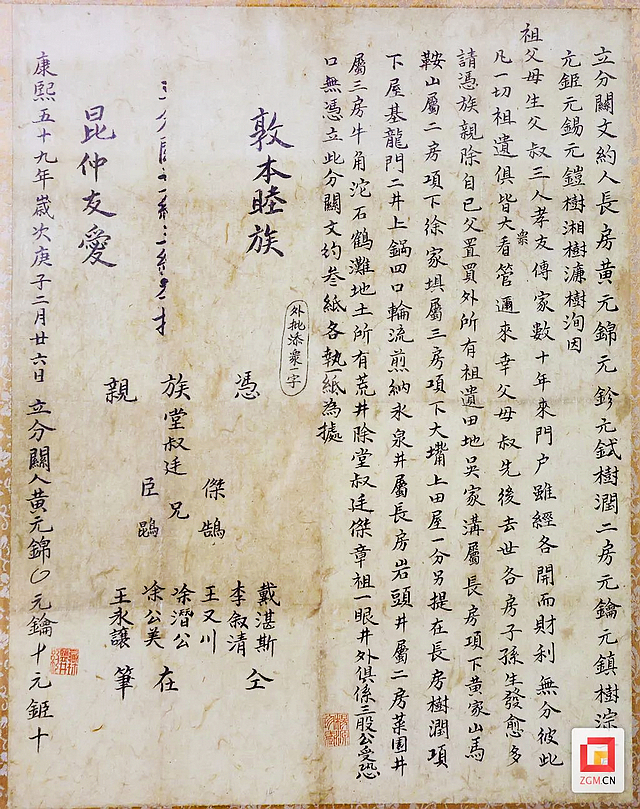 立分關文約人長房黃元錦元鉁元鉽樹潤二房元鑰元鎮樹淙
元鉅元錫元鎧樹湘樹濂樹洵因
祖父母生父叔三人孝友傳家數十年來門户雖經各開而財利無分彼此
凡一切祖遺俱皆大衆看管邇來幸父母叔先後去世各房子孫生發愈多
請憑族親除自已父置買外所有祖遺田地吳家溝屬長房項下黃家山馬
鞍山屬二房項下徐家埧屬三房項下大嘴上田屋一分另提在長房樹潤項
下屋基龍門二井上鍋四口輪流煎納永泉井屬長房岩頭井屬二房菜園井
屬三房牛角沱石鶴灘地土所有荒井除堂叔廷傑章祖一眼井外俱係三股公受恐
口無憑立此分關文約叁紙各執一紙為據
外批添衆一字
敦本睦族
昆仲友愛
憑
族堂叔廷
兄
親
傑
鵠
臣
鵾
戴湛斯
李叙清
王又川
凃潛公
凃公美
王永讓
仝
在
筆
康熙五十九年歲次庚子二月廿六日立分關人黃元錦元鑰十元鉅十
ZGM.CN